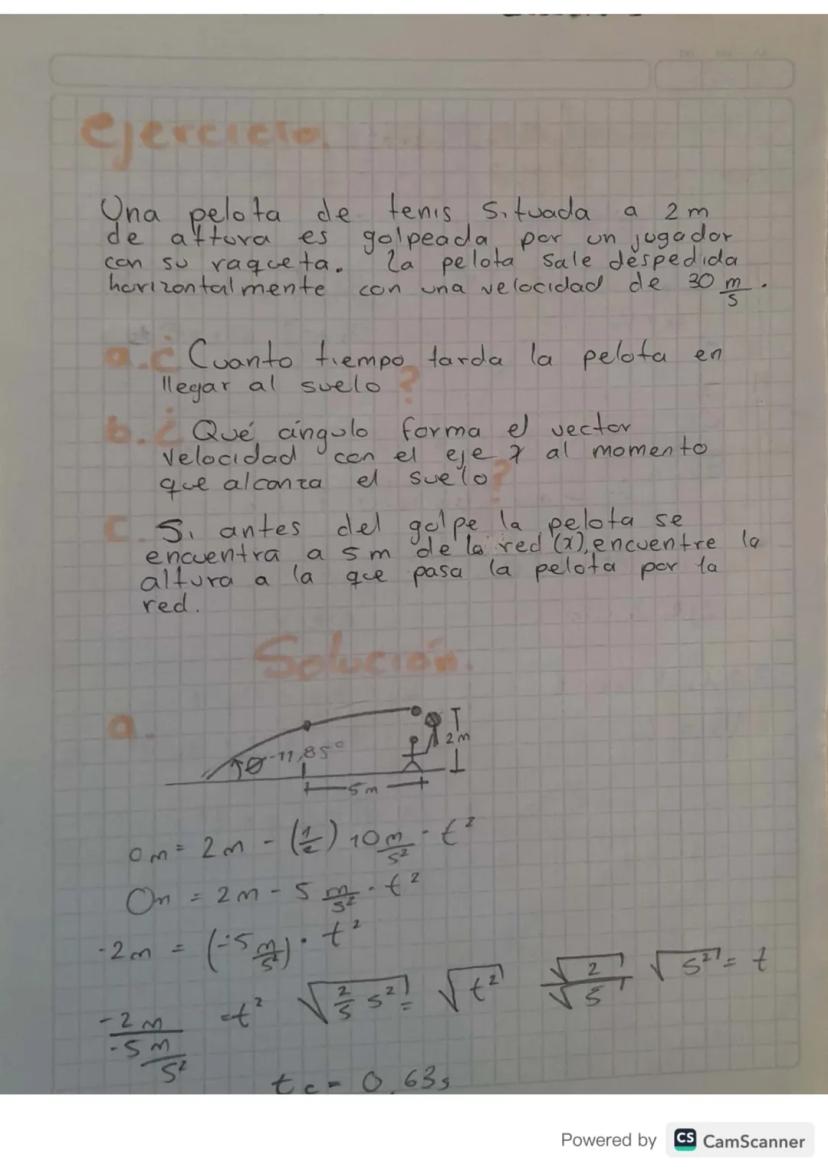 Ejercicio.
Una pelota de tenis situada a 2 m
de altura es golpeada por un jugador
con su raqueta. La pelota sale despedida
horizontalmente con una velocidad de 30 m/s.
a. ¿Cuanto tiempo tarda la pelota en
llegar al suelo?
b. ¿Qué ángulo forma el vector
velocidad con el eje x al momento
que alcanza el suelo?
c. Si antes del golpe la pelota se
encuentra a 5 m de la red (x), encuentre la
altura a la que pasa la pelota por la
red.
Solución.
a.
θ-11,85°
2m
5m
0m = 2m - (1/2) 10 m/s² · t²
0m = 2m - 5 m/s² · t²
-2m = (-5 m/s²) · t²
-2m / -5 m/s² = t² √(2/5 s²) = √t² √2/√5 √s² = t
tc = 0,63s
Powered by CS CamScanner